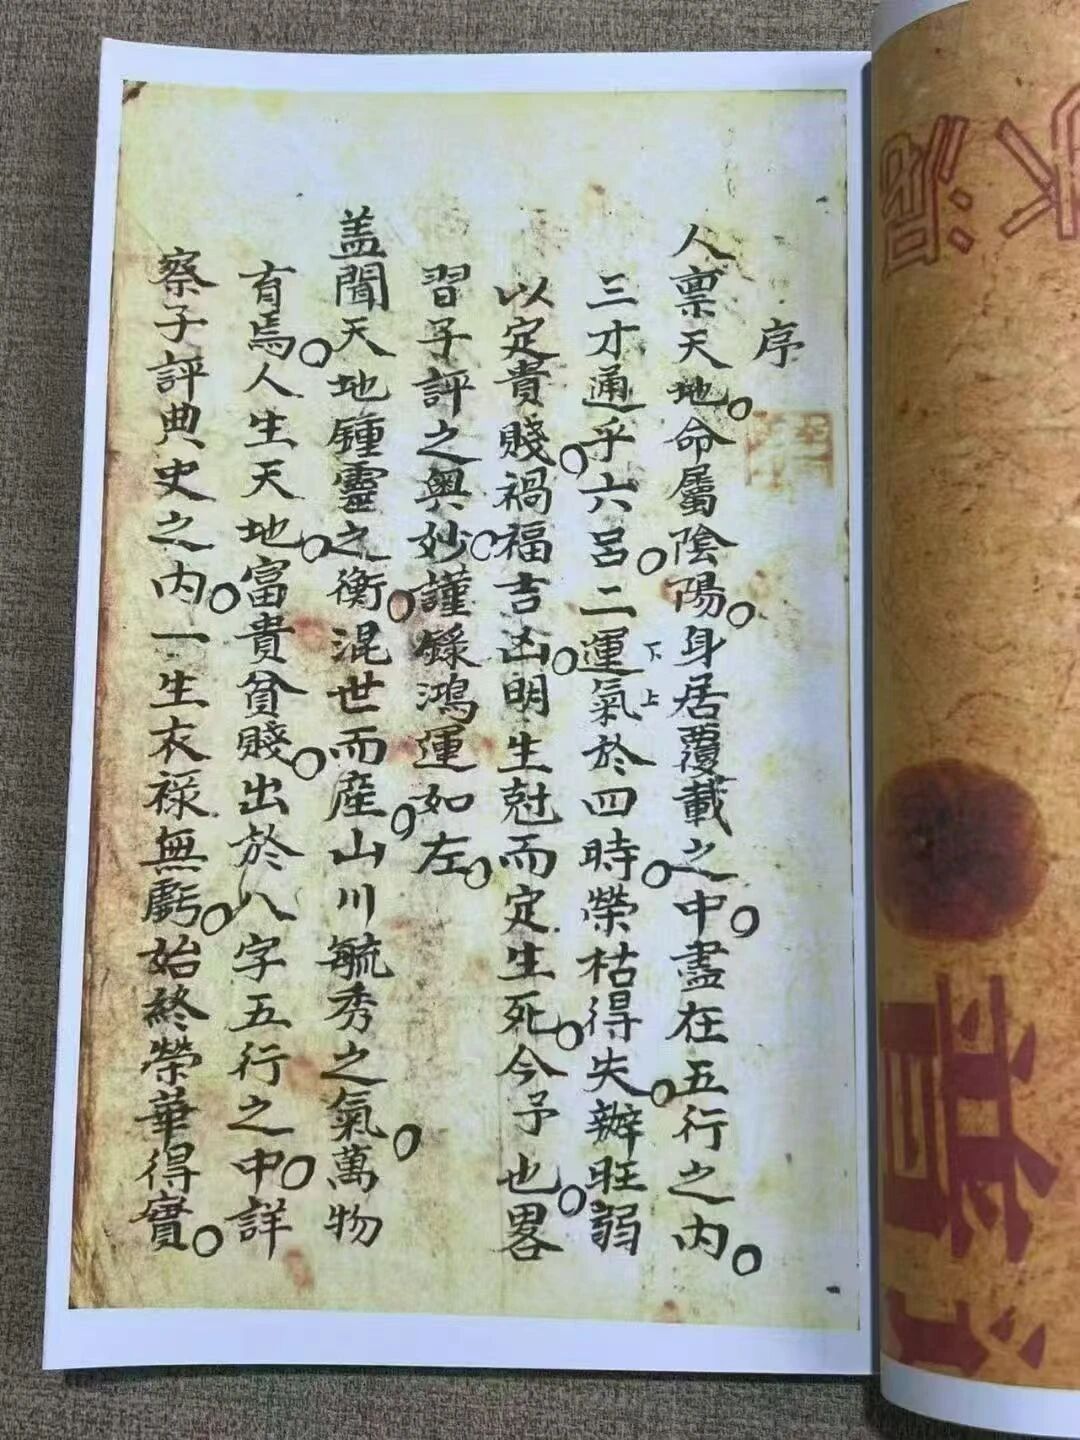 序
人禀天地。命屬陰陽。身居覆載之中。盡在五行之内。
三才通乎六呂。二運氣於四時。榮枯得失。辦旺弱
以定貴賤。禍福吉凶。明生尅而定生死。今予也。畧
習子評之奥妙。謹録鴻運如左。
盖聞天地鍾靈之衡。混世而産。山川毓秀之氣。萬物
有焉。人生天地。富貴貧賤。出於八字五行之中。詳
察子評典史之内。一生衣禄無虧。始終榮華得實。
下
上